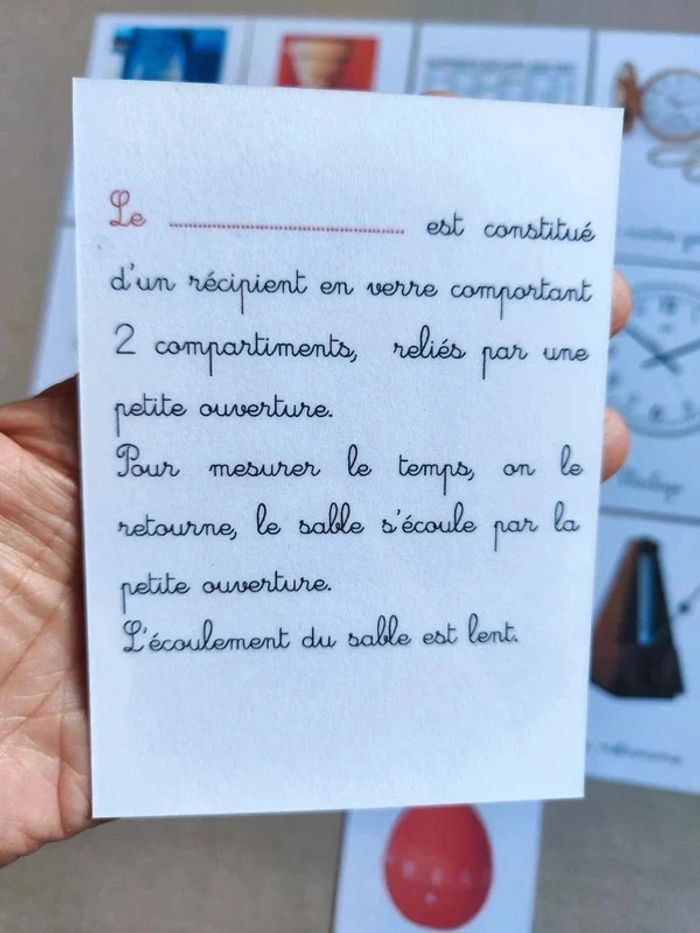 Le ........................................ est constitué
d'un récipient en verre comportant
2 compartiments, reliés par une
petite ouverture.
Pour mesurer le temps, on le
retourne, le sable s'écoule par la
petite ouverture.
L'écoulement du sable est lent.